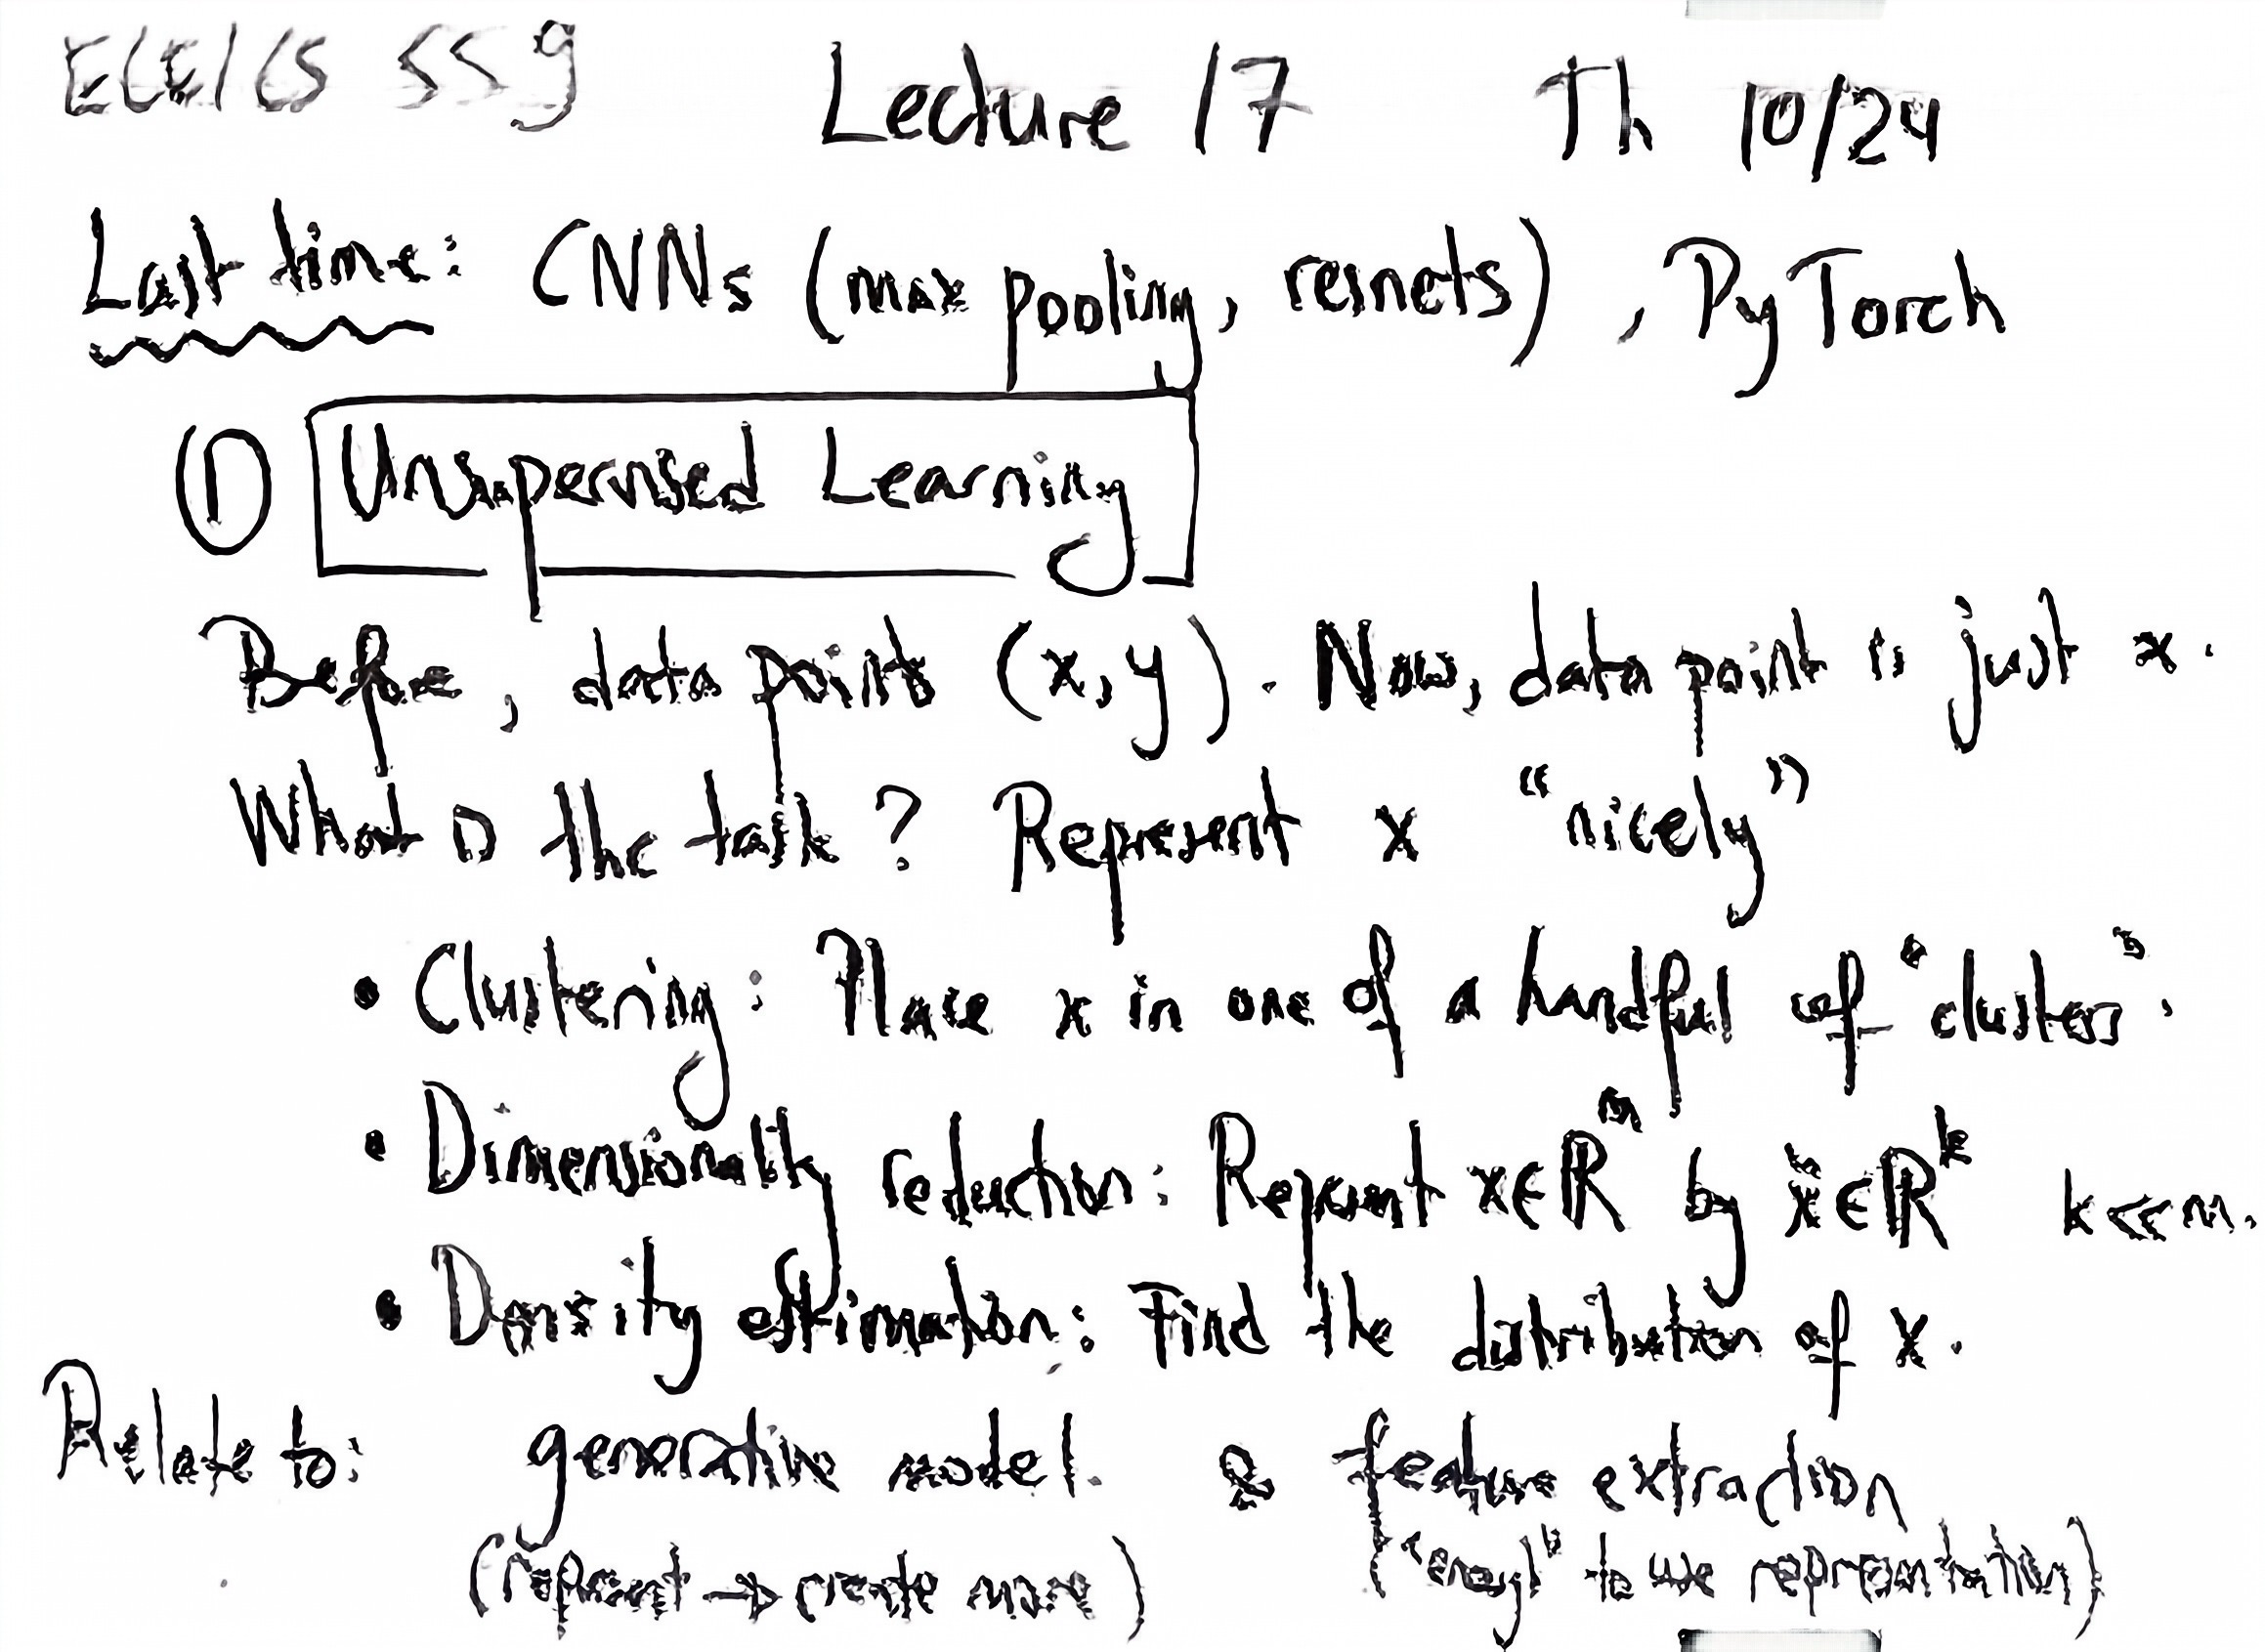 ECE/CS 559 Lecture 17 Th 10/24
Last time: CNNs (max pooling, resnets), PyTorch
① Unsupervised Learning
Before, data points (x,y). Now, data point is just x.
What is the task? Represent x "nicely"
• Clustering: Place x in one of a handful of "clusters".
• Dimensionality reduction: Represent x∈ℝᵐ by x̃∈ℝᵏ k<<m.
• Density estimation: Find the distribution of x.
Relate to: generative model. & feature extraction
(represent → create more) ( to use representation)